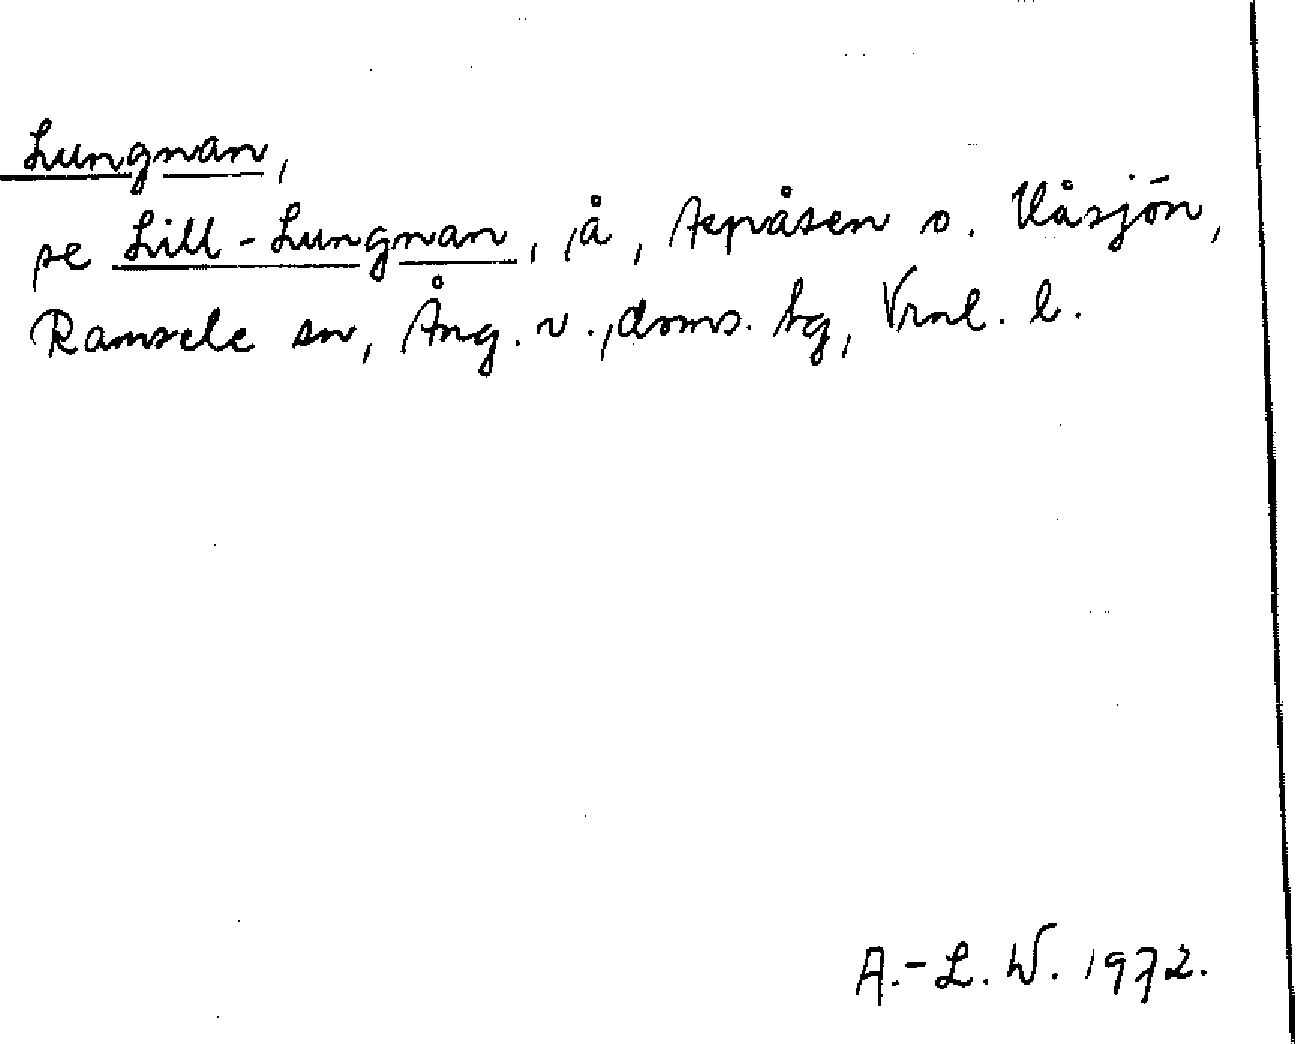 Lungnan,
se Lill-Lungnan, å, Aspåsen o. Våsjön,
Ramsele sn, Ång. v. doms. tg, Vrnl. l.
A.-L. W. 1972.